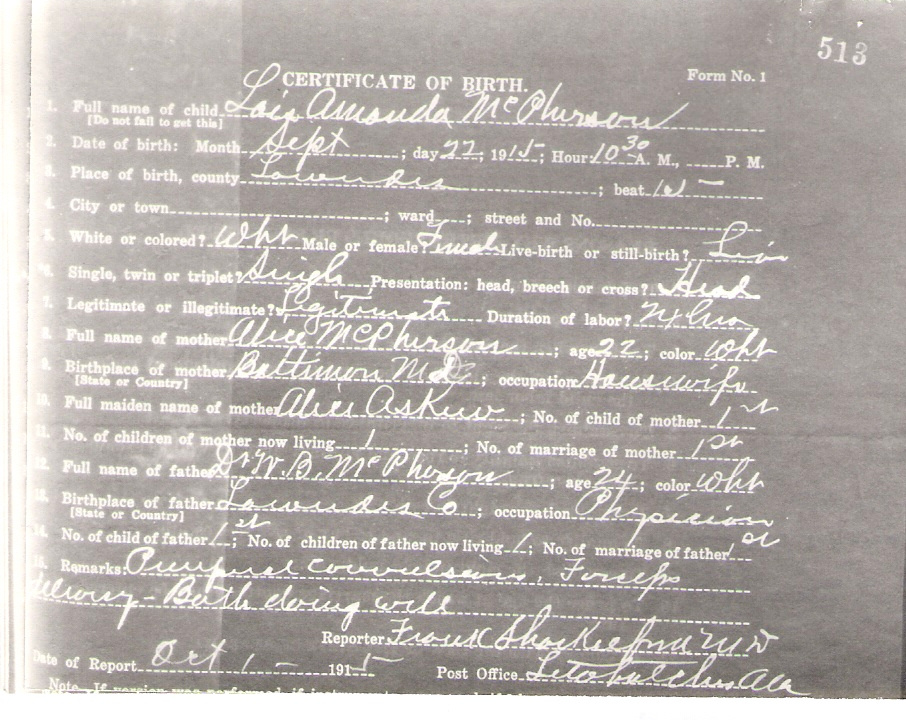 513
CERTIFICATE OF BIRTH. Form No. 1
1. Full name of child Lois Amanda McPherson
[Do not fail to get this]
2. Date of birth: Month Sept; day 22, 1915; Hour 10 30 A. M., P. M.
3. Place of birth, county Lowndes; beat 1st
4. City or town; ward; street and No.
5. White or colored? Wht Male or female? Female Live-birth or still-birth? Live
6. Single, twin or triplet? Single Presentation: head, breech or cross? Head
7. Legitimate or illegitimate? Legitimate Duration of labor?
8. Full name of mother Alice McPherson; age 22; color Wht
9. Birthplace of mother Baltimore Md; occupation Housewife
[State or Country]
10. Full maiden name of mother Alice Askew; No. of child of mother 1st
11. No. of children of mother now living 1; No. of marriage of mother 1st
12. Full name of father Dr. W. B. McPherson; age 24; color Wht
13. Birthplace of father Lowndes Co; occupation Physician
[State or Country]
14. No. of child of father 1st; No. of children of father now living 1; No. of marriage of father 1st
15. Remarks: Puerperal convulsions, Forceps
delivery - Both doing well
Reporter Frank MD
Date of Report Oct 1 - 1915 Post Office Letohatchee Ala
Note. If version was performed, if